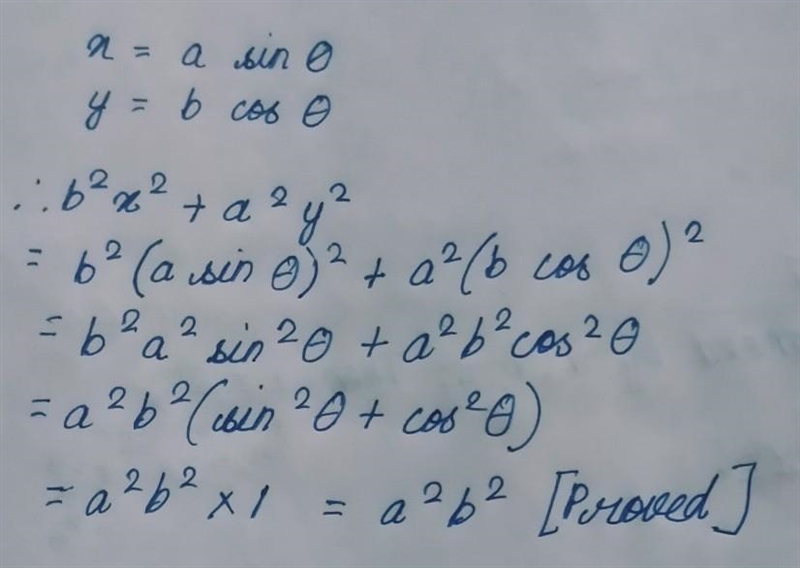 x = a sin θ
y = b cos θ
∴ b²x² + a²y²
= b²(a sin θ)² + a²(b cos θ)²
= b²a² sin²θ + a²b²cos²θ
= a²b²(sin²θ + cos²θ)
= a²b² × 1 = a²b² [Proved]